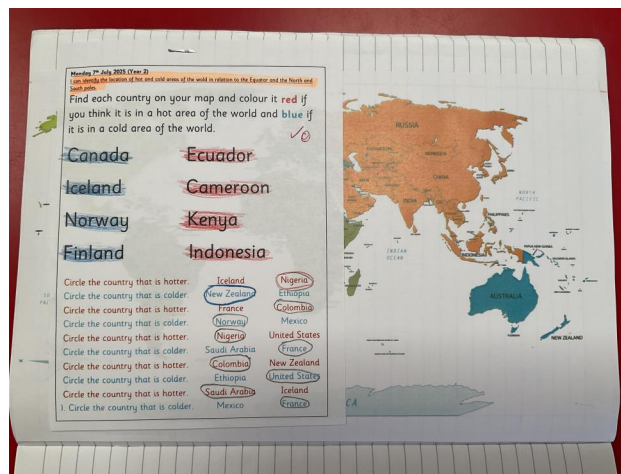 Monday 7th July 2025 (Year 2)
I can identify the location of hot and cold areas of the world in relation to the Equator and the North and
South poles.
Find each country on your map and colour it red if
you think it is in a hot area of the world and blue if
it is in a cold area of the world.
Canada Ecuador
Iceland Cameroon
Norway Kenya
Finland Indonesia
Circle the country that is hotter. Iceland Nigeria
Circle the country that is colder. New Zealand Ethiopia
Circle the country that is hotter. France Colombia
Circle the country that is colder. Norway Mexico
Circle the country that is hotter. Nigeria United States
Circle the country that is colder. Saudi Arabia France
Circle the country that is hotter. Colombia New Zealand
Circle the country that is colder. Ethiopia United States
Circle the country that is hotter. Saudi Arabia Iceland
). Circle the country that is colder. Mexico France
RUSSIA
MONGOLIA
CHINA
INDIA
NORTH
PACIFIC
PHILIPPINES
INDIAN
OCEAN
INDONESIA
PAPUA NEW GUINEA
AUSTRALIA
NEW ZEALAND
CA